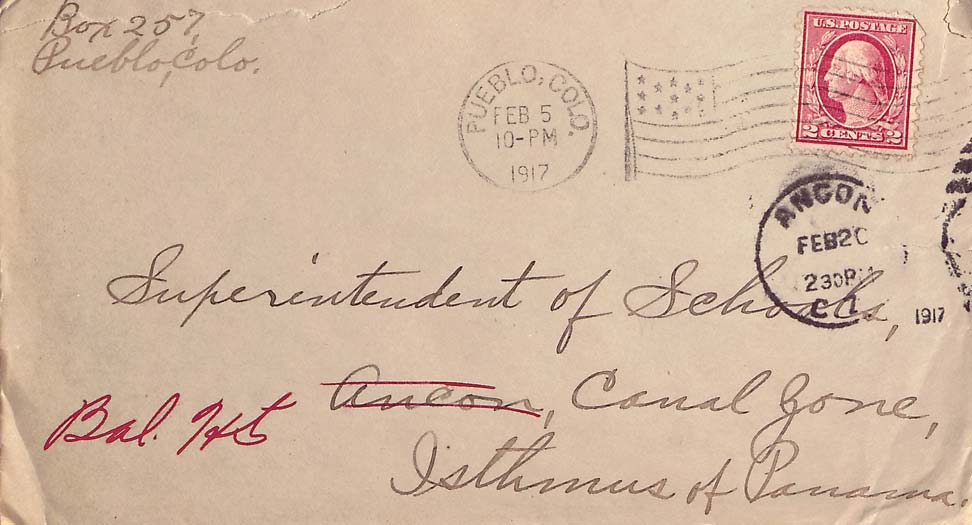 Box 257,
Pueblo, Colo.
PUEBLO, COLO.
FEB 5
10-PM
1917
U.S. POSTAGE
2 CENTS 2
ANCON
FEB 20
2 30 PM
1917
Superintendent of Schools,
Ancon, Canal Zone,
Bal. Hts
Isthmus of Panama.